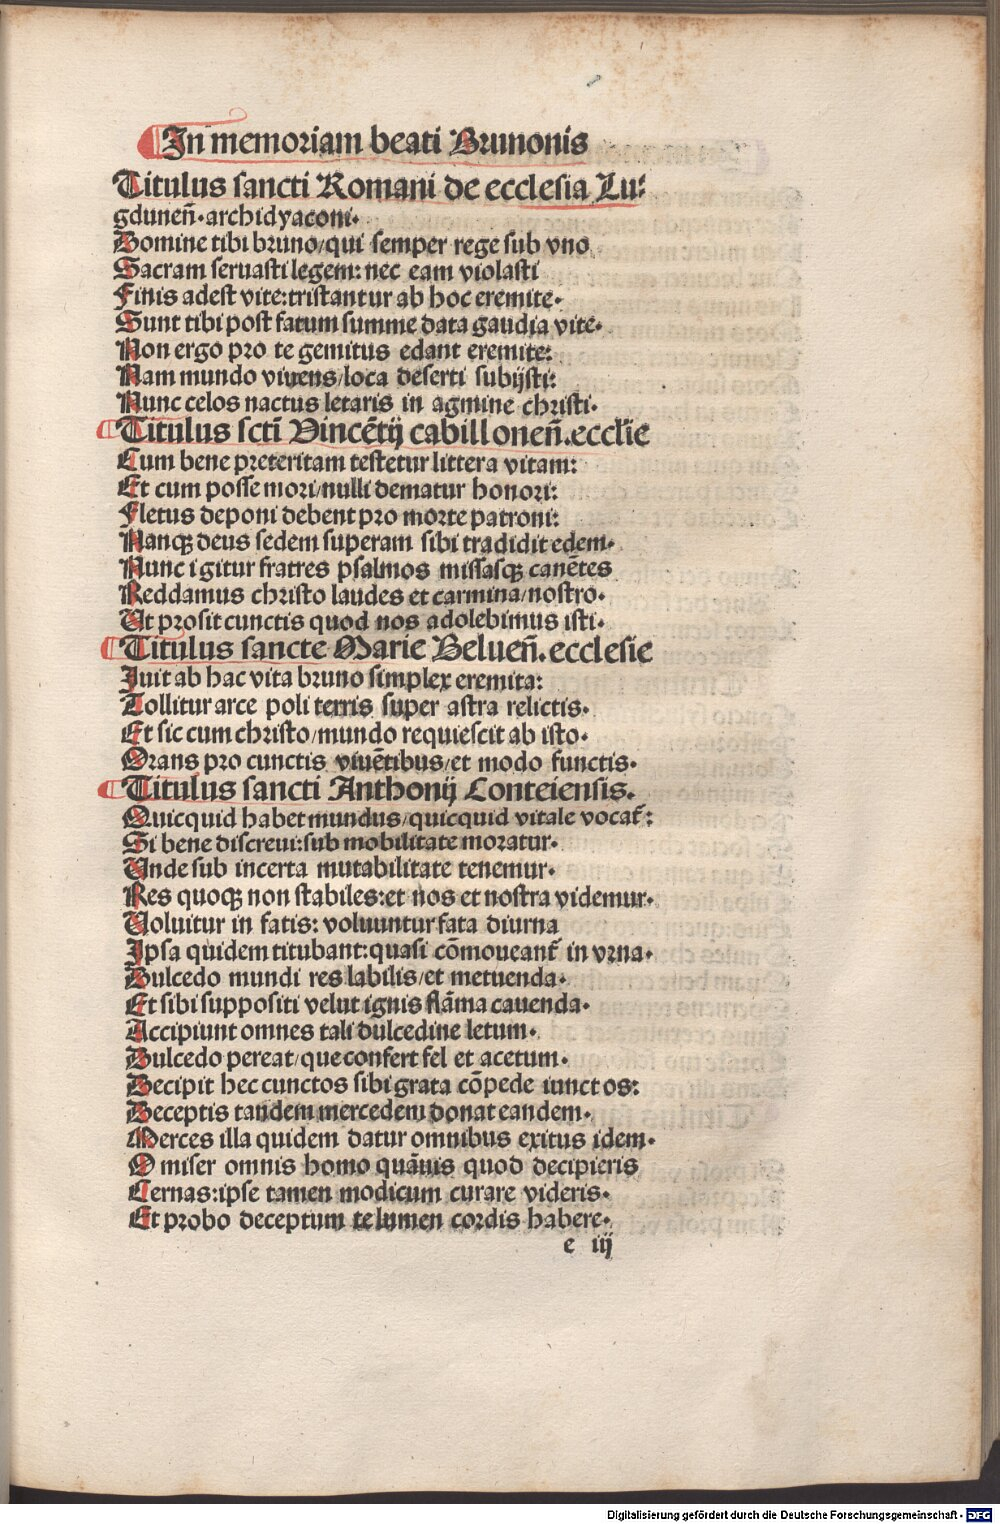 In memoriam beati Brunonis
Titulus sancti Romani de ecclesia Lu⸗
gduneñ·archidyaconi·
Domine tibi bruno/qui semper rege sub vno
Sacram seruasti legem: nec eam violasti
Finis adest vite:tristantur ab hoc eremite·
Sunt tibi post fatum summe data gaudia vite·
Non ergo pro te gemitus edant eremite:
Nam mundo viuens/loca deserti subijsti:
Nunc celos nactus letaris in agmine christi·
Titulus scti Vincētij cabilloneñ.ecclie
Cum bene preteritam testetur littera vitam:
Et cum posse mori/nulli dematur honori:
Fletus deponi debent pro morte patroni:
Nanqꝫ deus sedem superam sibi tradidit edem·
Nunc igitur fratres psalmos missasqꝫ canētes
Reddamus christo laudes et carmina/nostro·
Ut prosit cunctis quod nos adolebimus isti·
Titulus sancte Marie Belueñ.ecclesie
Iuit ab hac vita bruno simplex eremita:
Tollitur arce poli terris super astra relictis·
Et sic cum christo/mundo requiescit ab isto·
Orans pro cunctis viuētibus/et modo functis·
Titulus sancti Anthonij Conteiensis.
Quicquid habet mundus/quicquid vitale vocat᷑:
Si bene discreui:sub mobilitate moratur·
Unde sub incerta mutabilitate tenemur·
Res quoqꝫ non stabiles:et nos et nostra videmur·
Voluitur in fatis: voluuntur fata diurna
Ipsa quidem titubant:quasi cōmoueant᷑ in vrna·
Dulcedo mundi res labilis/et metuenda·
Et sibi suppositi velut ignis flāma cauenda·
Accipiunt omnes tali dulcedine letum·
Dulcedo pereat/que confert fel et acetum·
Decipit hec cunctos sibi grata cōpede iunctos:
Deceptis tandem mercedem donat eandem·
Merces illa quidem datur omnibus exitus idem·
O miser omnis homo quāuis quod decipieris
Cernas:ipse tamen modicum curare videris·
Et probo deceptum te lumen cordis habere·
e iij
Digitalisierung gefördert durch die Deutsche Forschungsgemeinschaft - DFG